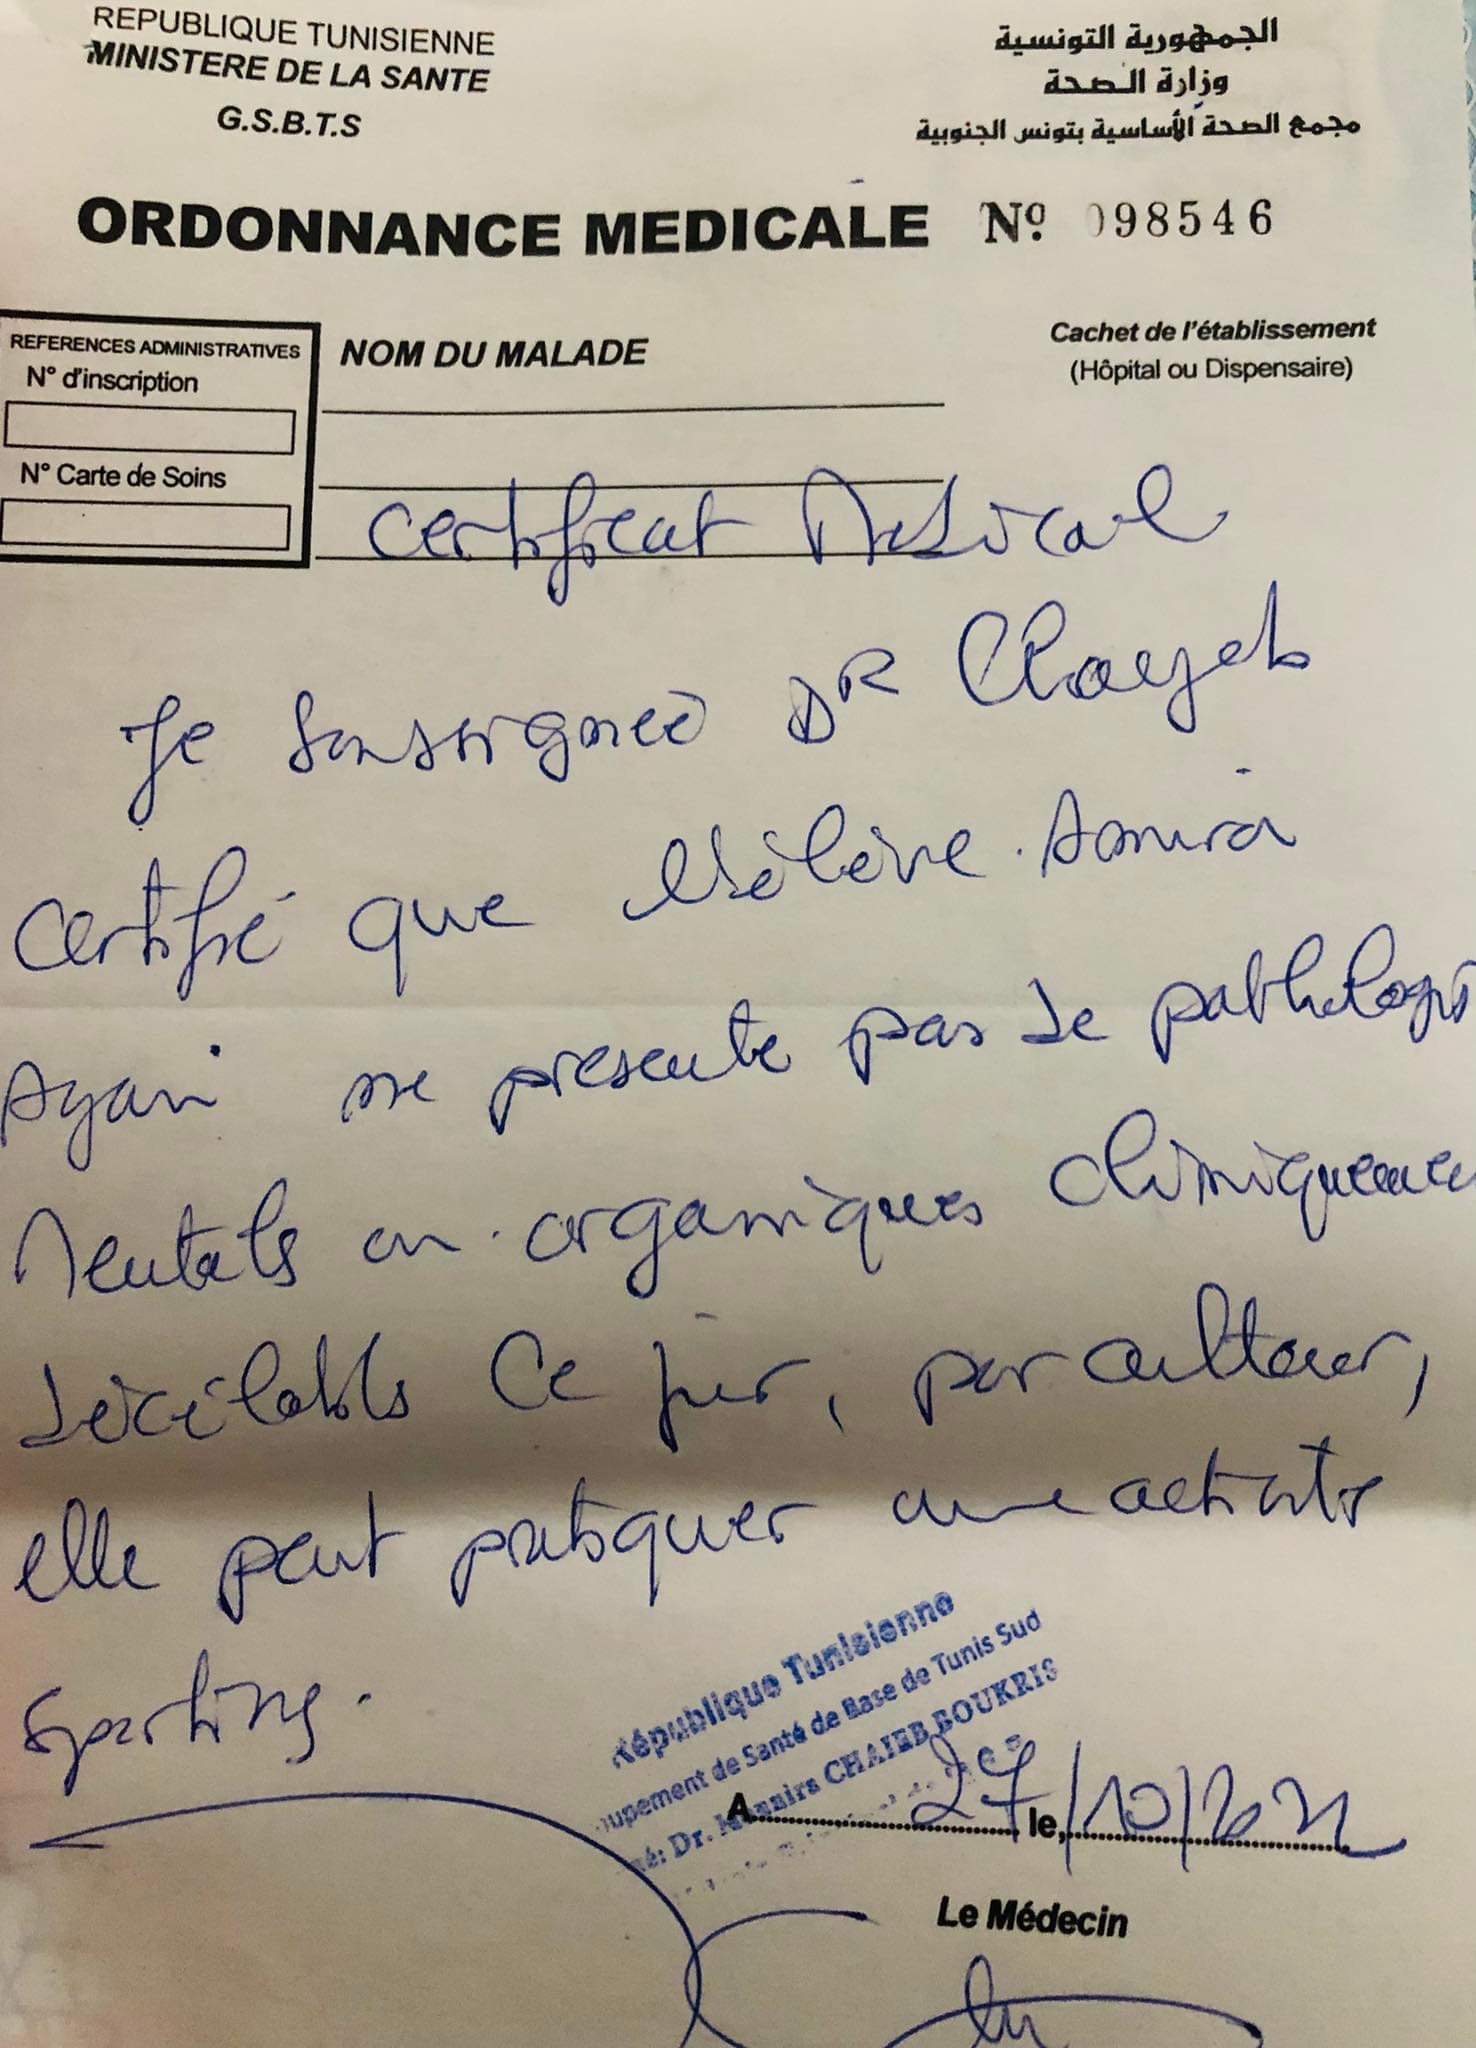 REPUBLIQUE TUNISIENNE
MINISTERE DE LA SANTE
G.S.B.T.S
الجمهورية التونسية
وزارة الصحة
مجمع الصحة الأساسية بتونس الجنوبية
ORDONNANCE MEDICALE Nº 098546
REFERENCES ADMINISTRATIVES
N° d'inscription
N° Carte de Soins
NOM DU MALADE
Cachet de l'établissement
(Hôpital ou Dispensaire)
Certificat Medical
Je soussignée DR Chayeb
Certifié que l'élève Amira
Ayari ne presente pas de pathologi
Mentals ou organiques cliniquemen
décélables Ce jour, par ailleur,
elle peut pratiquer une activite
Sportive.
République Tunisienne
upement de Santé de Base de Tunis Sud
Dr. CHAIEB BOUKRIS
A 27 le, /10/2021
Le Médecin